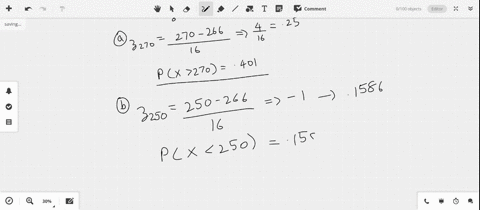 Comment
9/100 objects
Editor
saving...
ⓐ z270 = 270-266 / 16 ⇒ 4/16 = .25
P(X >270) = .401
ⓑ z250 = 250-266 / 16 ⇒ -1 → .1586
P(X < 250) = .15
20%